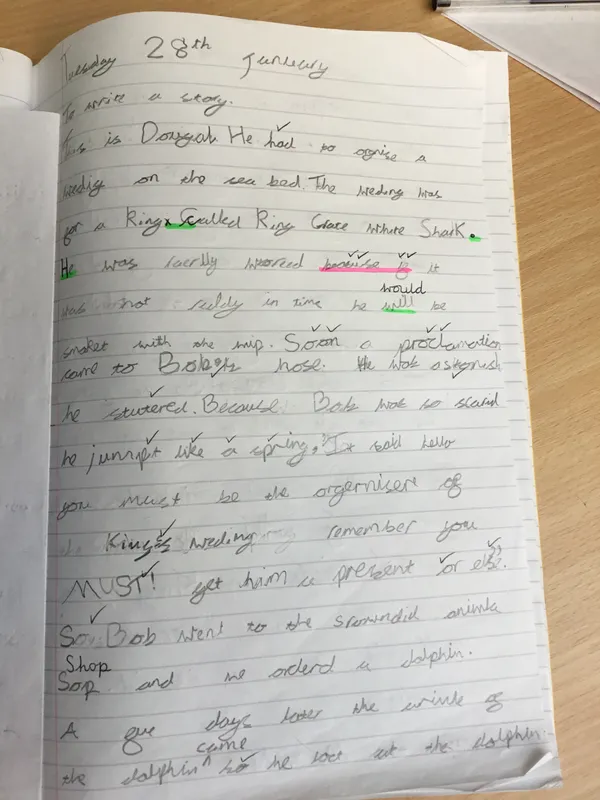 Tuesday 28th Junuery
To write a story.
This is Dougal. He had to ognise a
weding on the sea bed. The weding was
for a King Called King Grate white Shark.
He was reerlly worred because if it
was not reddy in time he would will be
smaket with the wip. Soon a proclamation
came to Bob's hose. He was astonish
he stutered. Because Bob was so scared
he jumpt like a spring, It said hello
you must be the orgerniser of
King's weding remember you
MUST! get him a present or else.
So Bob went to the
Shop
Sop and he orderd a dolphin.
A few days later the of
came
the dolphin so he at the dolphin.